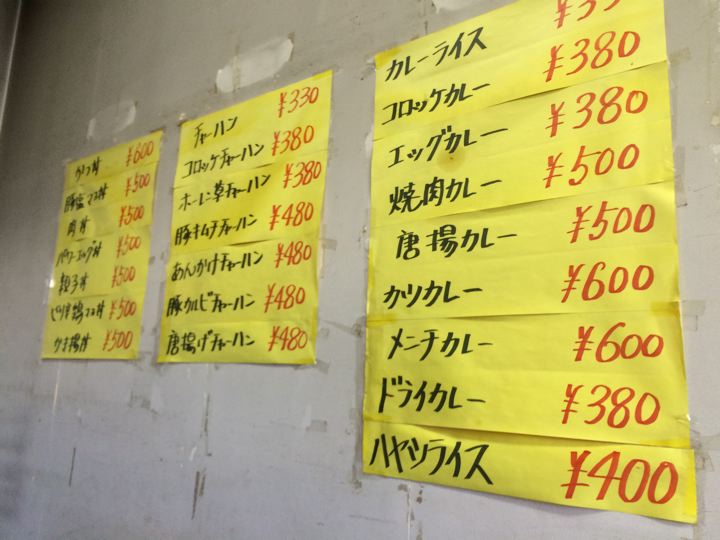 かつ丼 ¥600
豚塩マヨ丼 ¥500
肉丼 ¥500
パワーエッグ丼 ¥500
親子丼 ¥500
ピリ辛鶏マヨ丼 ¥500
かき揚丼 ¥500
チャーハン ¥330
コロッケチャーハン ¥380
ホーレン草チャーハン ¥380
豚キムチチャーハン ¥480
あんかけチャーハン ¥480
豚カルビチャーハン ¥480
唐揚げチャーハン ¥480
カレーライス
コロッケカレー ¥380
エッグカレー ¥380
焼肉カレー ¥500
唐揚カレー ¥500
カツカレー ¥600
メンチカレー ¥600
ドライカレー ¥380
ハヤシライス ¥400